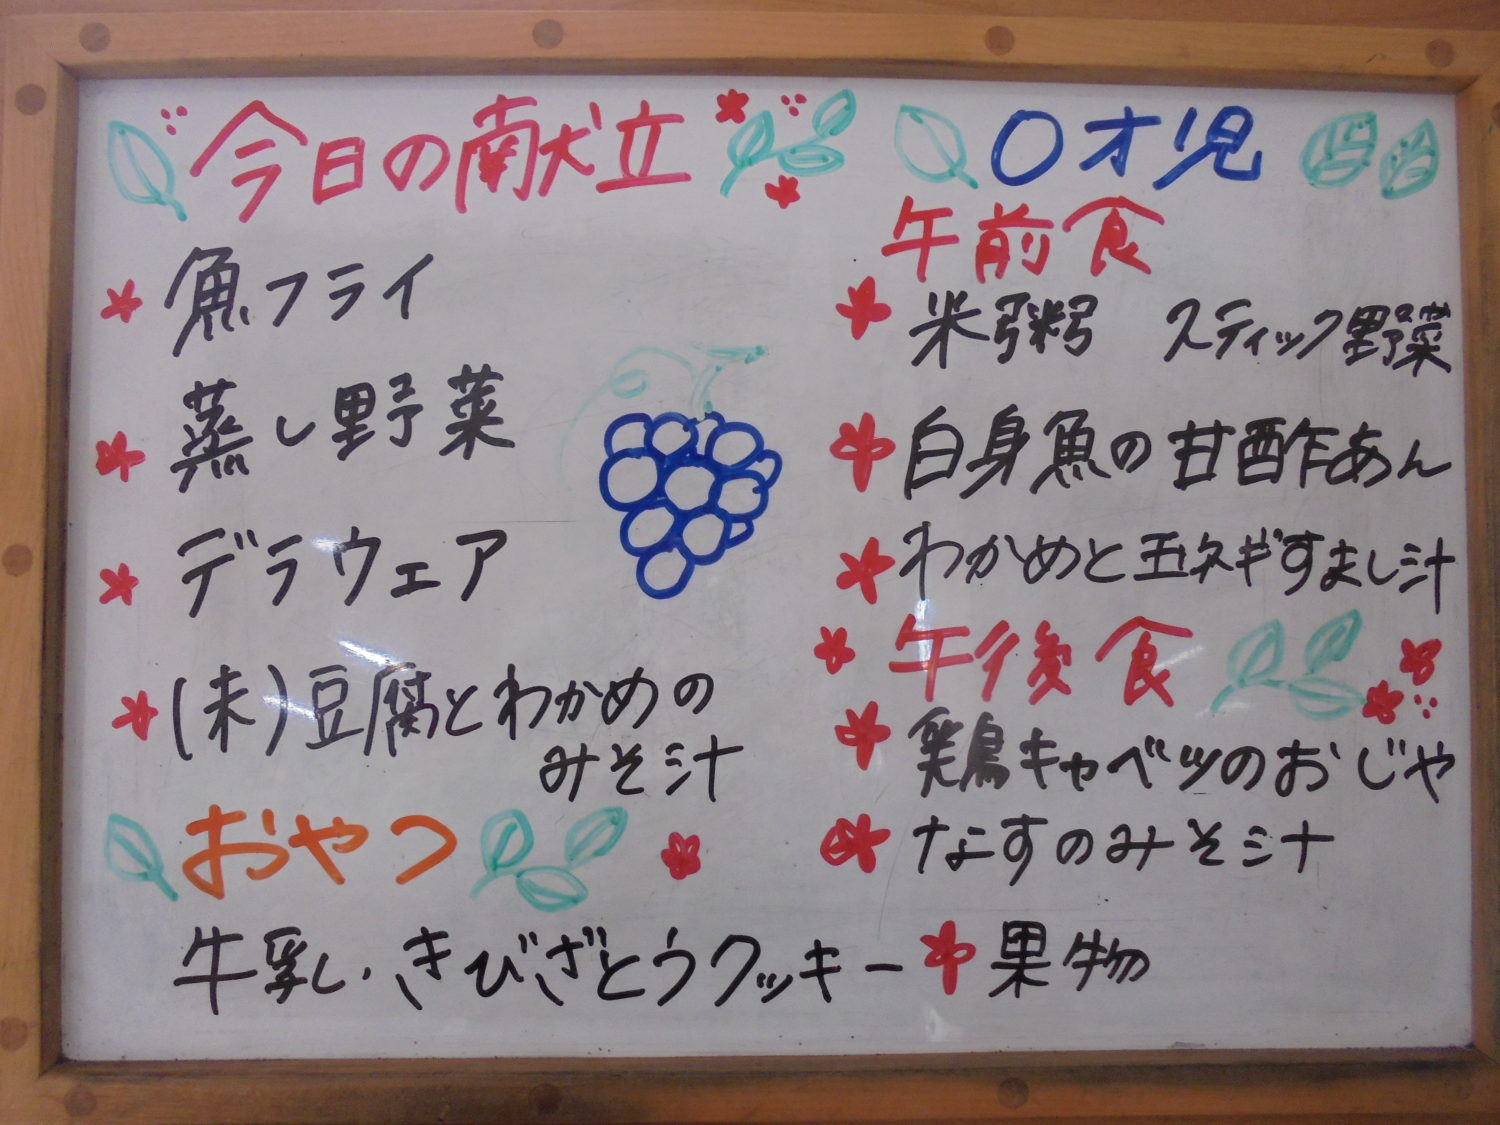 今日の献立
魚フライ
蒸し野菜
デラウェア
(未)豆腐とわかめの
みそ汁
おやつ
牛乳・きびざとうクッキー
0才児
午前食
米粥 スティック野菜
白身魚の甘酢あん
わかめと玉ネギすまし汁
午後食
鶏キャベツのおじや
なすのみそ汁
果物